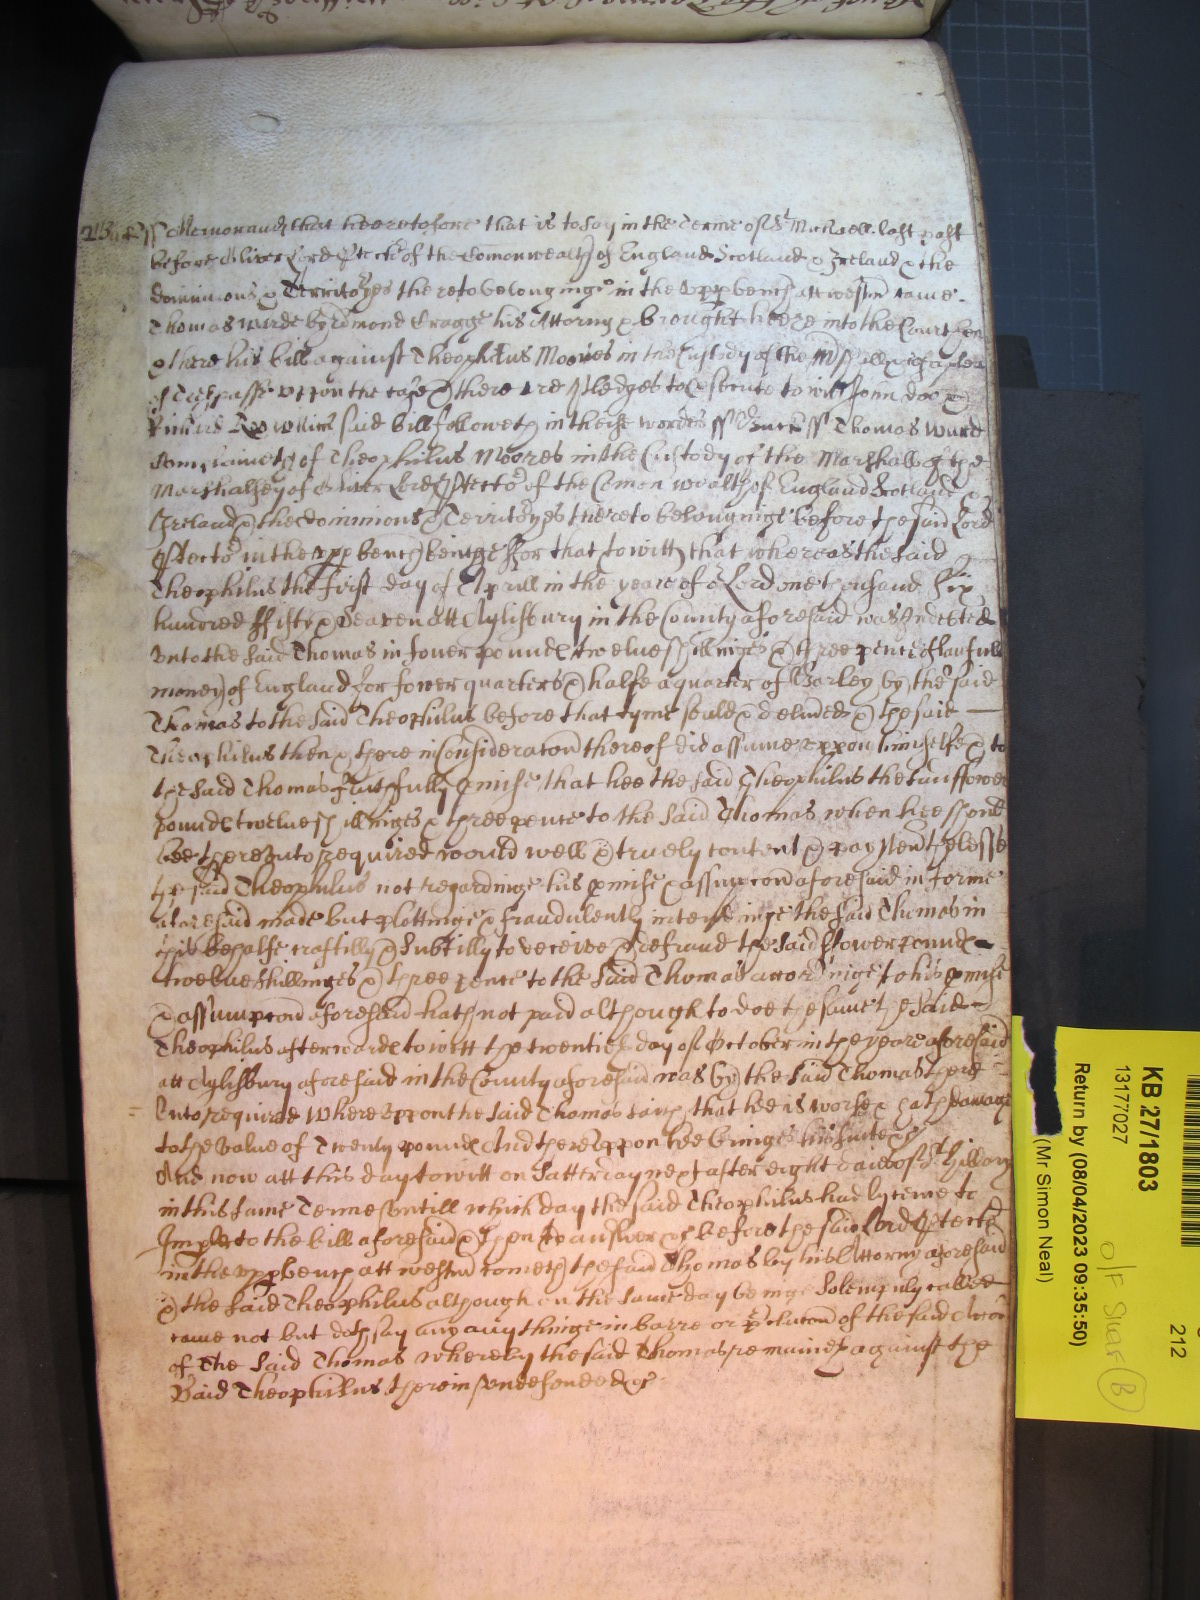 Bucks ss Memorand that heeretofore that is to say in the Terme of St Michaell last past
before Oliver Lord Protector of the Comonwealth of England Scotland & Ireland & the
dominions & Territoryes thereto belonginge in the upp bench att Westm came
Thomas Warde by Edmond Cragge his Attorny & brought heere into the Court then
& there his bill against Theophilus Moores in the Custody of the Mshall &c of a plea
of Trespasse uppon the case & there are pledges to psecute to witt John doo &
Richard Roo which said bill followeth in theise wordes ss Bucks ss Thomas Warde
Complaineth of Theophilus Moores in the Custody of the Marshall of the
Marshalsey of Oliver Lord Ptector of the Comon wealth of England Scotland &
Ireland & the dominions & Territoryes thereto belonginge before the said Lord
Ptector in the upp bench beinge For that to witt that whereas the said
Theophilus the first day of Aprill in the yeare of or Lord one thousand Six
hundred ffiftie & Seaven att Aylisbury in the County aforesaid was Indebted
unto the said Thomas in fower pounds twelve shillinges & three pence of lawfull
money of England for fower quarters & halfe a quarter of Barley by the said
Thomas to the said Theophilus before that tyme sould & delivded & the said
Theophilus then & there in Consideracon thereof did assume uppon himselfe & to
the said Thomas faithfully pmise that hee the said Theophilus the said ffower
pounds twelve shillinges & three pence to the said Thomas when hee should
bee thereunto required would well & truely content & pay Nevthelesse
the said Theophilus not regardinge his pmise & assumpcon aforesaid in forme
aforesaid made but plottinge & fraudulently intendinge the said Thomas in
this behalfe craftilly & Subtilly to deceive & defraud the said ffower pounds
twelve shillinges & three pence to the said Thomas accordinge to his pmise
& assumpcon aforesaid hath not paid although to doe the same the said
Theophilus afterwards to witt the twentieth day of October in the yeare aforesaid
att Aylisbury aforesaid in the County aforesaid was by the said Thomas there
unto required Whereuppon the said Thomas saith that hee is worse & hath damage
to the value of Twenty pounds And thereuppon hee bringeth his suite &c
And now att this day to witt on Satterday next after eight daies of St Hillary
in this same Terme untill which day the said Theophilus had lycence to
Imple to the bill aforesaid & then to answer &c before the said Lord Ptector
in the upp bench att Westm cometh the said Thomas by his Attorny aforesaid
& the said Theophilus although on the same day beinge Solempnly called
came not but doth say any thinge in barre or pclusion of the said Accon
of the said Thomas whereby the said Thomas remaineth against the
Said Theophilus therein undefended &c
KB 27/1803
13177027
Return by (08/04/2023 09:35:50)
(Mr Simon Neal)
212
O/F Shelf B